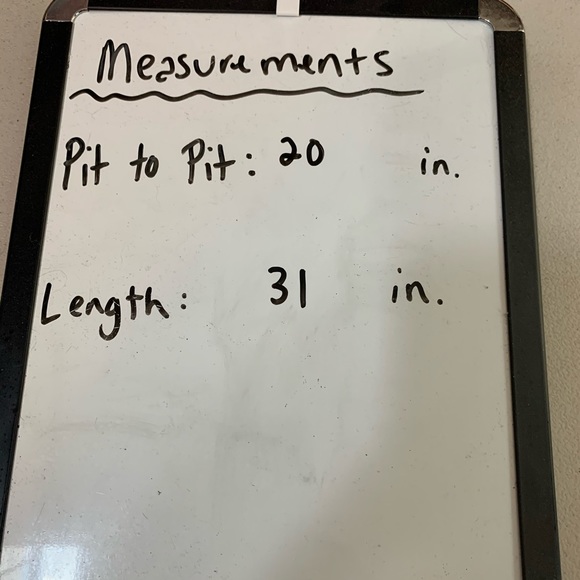 Measurements
Pit to Pit: 20 in.
Length: 31 in.